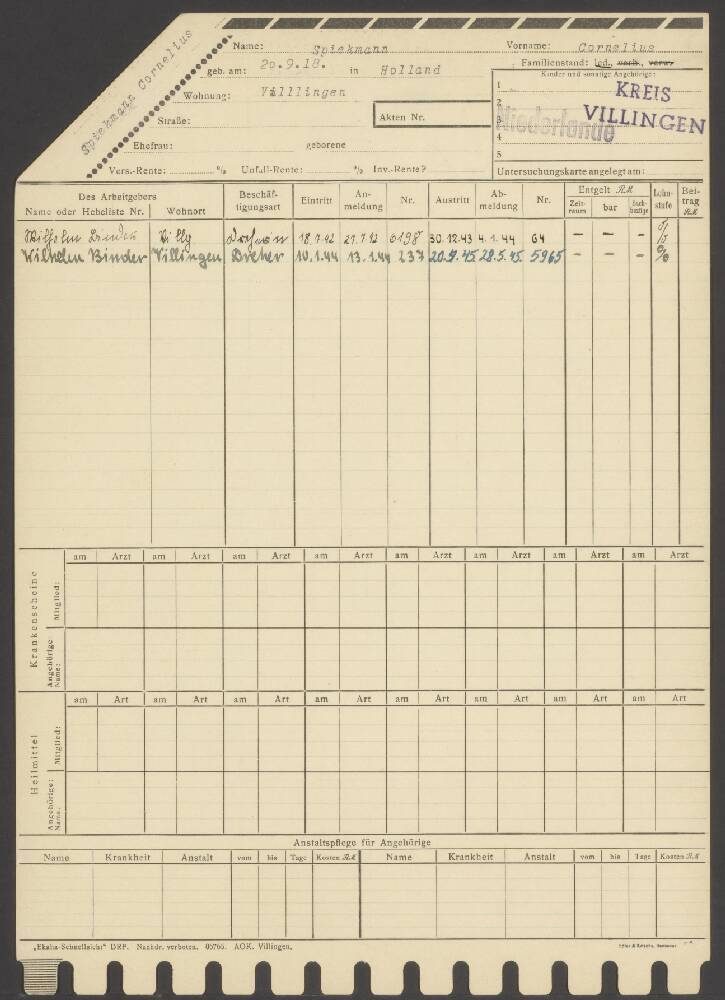 Spiekmann Cornelius
Name: Spiekmann Vorname: Cornelius
geb. am: 20.9.18. in Holland Familienstand: led., verh., verw.
Kinder und sonstige Angehörige:
Wohnung: Villlingen
1
KREIS
2
Straße: Akten Nr.
3
Niederlande
VILLINGEN
4
Ehefrau: geborene
5
Vers.-Rente: % Unfall-Rente: % Inv.-Rente?
Untersuchungskarte angelegt am:
Des Arbeitgebers
Name oder Hebeliste Nr. Wohnort Beschäf-tigungsart Eintritt An-meldung Nr. Austritt Ab-meldung Nr. Entgelt RM Zeit-raum bar Sach-bezüge Lohn-stufe Bei-trag RM
Wilhelm Binder 18.7.42 21.7.42 6198 30.12.43 4.1.44 64 - - -
Wilhelm Binder Villingen Dreher 10.1.44 13.1.44 237 20.9.45 28.5.45. 5965 - - -
am Arzt am Arzt am Arzt am Arzt am Arzt am Arzt am Arzt am Arzt
Krankenscheine
Mitglied:
Angehörige Name:
am Art am Art am Art am Art am Art am Art am Art am Art
Heilmittel
Mitglied:
Angehörige: Name:
Anstaltspflege für Angehörige
Name Krankheit Anstalt vom bis Tage Kosten RM Name Krankheit Anstalt vom bis Tage Kosten RM
„Ekaha-Schnellsicht" DRP. Nachdr. verboten. 05765. AOK. Villingen.